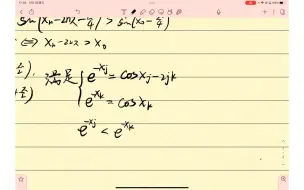 sin(xₙ-2nπ-π/4) > sin(x₀-π/4)
⇔ xₙ-2nπ > x₀
满足 { e^{-xⱼ} = cos xⱼ-2jπ
e^{-xₖ} = cos xₖ
e^{-xⱼ} < e^{-xₖ}